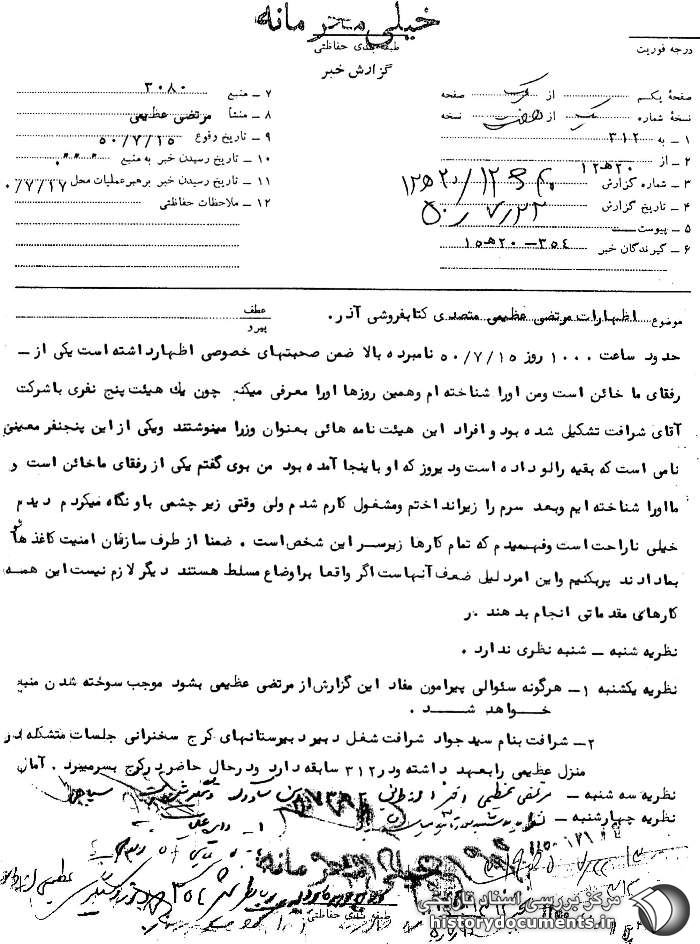 خیلی محرمانه
طبقه بندی حفاظتی
درجه فوریت
گزارش خبر
صفحهٔ یکم از یک صفحه
نسخهٔ شماره یک از هفت نسخه
۱ ـ به ۳۱۲
۲ ـ از ۲۰هـ۱۲
۳ ـ شماره گزارش
۴ ـ تاریخ گزارش ۵۰/۷/۲۲
۵ ـ پیوست
۶ ـ گیرندگان خبر ۳۵۴ ـ ۲۰هـ۱۵
۷ ـ منبع ۳۰۸۰
۸ ـ منشأ مرتضی عظیمی
۹ ـ تاریخ وقوع ۵۰/۷/۱۵
۱۰ ـ تاریخ رسیدن خبر به منبع
۱۱ ـ تاریخ رسیدن خبر برهبر عملیات محل
۱۲ ـ ملاحظات حفاظتی
موضوع اظهارات مرتضی عظیمی متصدی کتابفروشی آذر .
عطف
پیرو
حدود ساعت ۱۰۰۰ روز ۵۰/۷/۱۵ نامبرده بالا ضمن صحبتهای خصوصی اظهار داشته است یکی از ـ
رفقای ما خائن است ومن اورا شناخته ام وهمین روزها اورا معرفی میکنم چون یك هیئت پنج نفری با شرکت
آقای شرافت تشکیل شده بود و افراد این هیئت نامه هائی بعنوان وزرا مینوشتند ویکی از این پنجنفر معینی
نامی است که بقیه رالو داده است ودیروز که او با ینجا آمده بود من بوی گفتم یکی از رفقای ماخائن است و
مااورا شناخته ایم وبعد سرم را زیرانداختم ومشغول کارم شدم ولی وقتی زیر چشمی باو نگاه میکردم دیدم
خیلی ناراحت است وفهمیدم که تمام کارها زیرسر این شخص است . ضمنا از طرف سازمان امنیت کاغذ ها
بما دادند پرکنیم واین امر دلیل ضعف آنهاست اگر واقعا براوضاع مسلط هستند دیگر لازم نیست این همه
کارهای مقدماتی انجام بدهند .
نظریه شنبه ـ شنبه نظری ندارد .
نظریه یکشنبه ۱ ـ هرگونه سئوالی پیرامون مفاد این گزارش از مرتضی عظیمی بشود موجب سوخته شدن منبع
خواهد شد .
۲ ـ شرافت بنام سید جواد شرافت شغل دبیر دبیرستانهای کرج سخنرانی جلسات متشکله در
منزل عظیمی را بعهده داشته ودر ۳۱۲ سابقه دارد ودرحال حاضر درکرج بسرمیبرد .
نظریه سه شنبه ـ
نظریه چهارشنبه ـ
خیلی محرمانه
طبقه بندی حفاظتی
مرکز بررسی اسناد تاریخی
historydocuments.ir